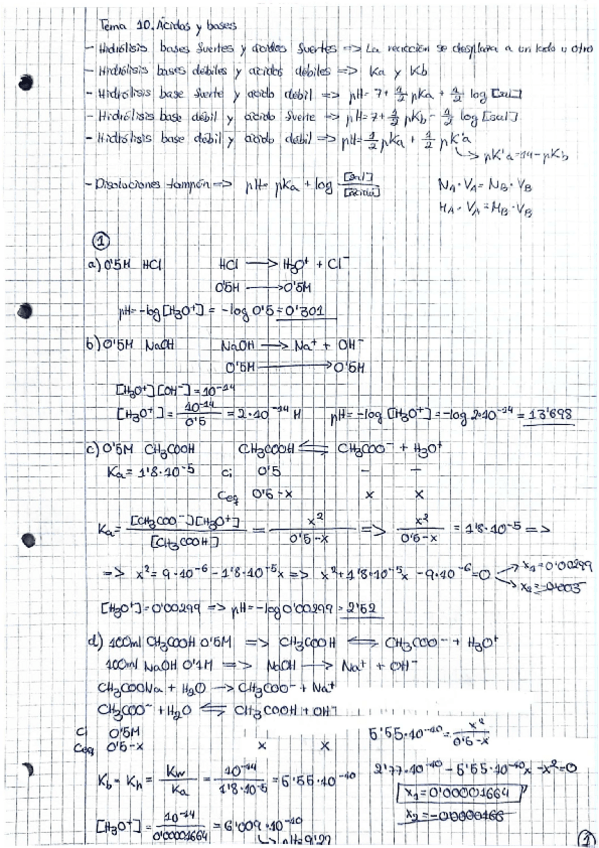 Tema 10. Ácidos y bases
- Hidrólisis bases fuertes y ácidos fuertes => La reacción se desplaza a un lado u otro
- Hidrólisis bases débiles y ácidos débiles => Ka y Kb
- Hidrólisis base fuerte y ácido débil => pH = 7 + 1/2 pKa + 1/2 log [sal]
- Hidrólisis base débil y ácido fuerte => pH = 7 + 1/2 pKb - 1/2 log [sal]
- Hidrólisis base débil y ácido débil => pH = 1/2 pKa + 1/2 pK'a
↳ pK'a = 14 - pKb
- Disoluciones tampón => pH = pKa + log [sal]/[ácido]
NA · VA = NB · VB
MA · VA = MB · VB
①
a) 0'5M HCl HCl → H3O+ + Cl-
0'5M → 0'5M
pH = -log [H3O+] = -log 0'5 = 0'301
b) 0'5M NaOH NaOH → Na+ + OH-
0'5M → 0'5M
[H3O+][OH-] = 10^-14
[H3O+] = 10^-14/0'5 = 2·10^-14 M pH = -log [H3O+] = -log 2·10^-14 = 13'698
c) 0'5M CH3COOH CH3COOH ⇌ CH3COO- + H3O+
Ka = 1'8·10^-5 Ci 0'5 - -
Ceq 0'5-x x x
Ka = [CH3COO-][H3O+]/[CH3COOH] = x²/0'5-x => x²/0'5-x = 1'8·10^-5 =>
=> x² = 9·10^-6 - 1'8·10^-5x => x² + 1'8·10^-5x - 9·10^-6 = 0 → x1 = 0'00299
→ x2 = -0'003
[H3O+] = 0'00299 => pH = -log 0'00299 = 2'52
d) 100ml CH3COOH 0'5M => CH3COOH ⇌ CH3COO- + H3O+
100ml NaOH 0'1M => NaOH → Na+ + OH-
CH3COONa + H2O → CH3COO- + Na+
CH3COO- + H2O ⇌ CH3COOH + OH-
Ci 0'5M
Ceq 0'5-x x x
5'55·10^-10 = x²/0'5-x
Kb = Kh = Kw/Ka = 10^-14/1'8·10^-5 = 5'55·10^-10
2'77·10^-10 - 5'55·10^-10x - x² = 0
x1 = 0'00001664
x2 = -0'0000166
[H3O+] = 10^-14/0'00001664 = 6'009·10^-10
↳ pH = 9'22
①